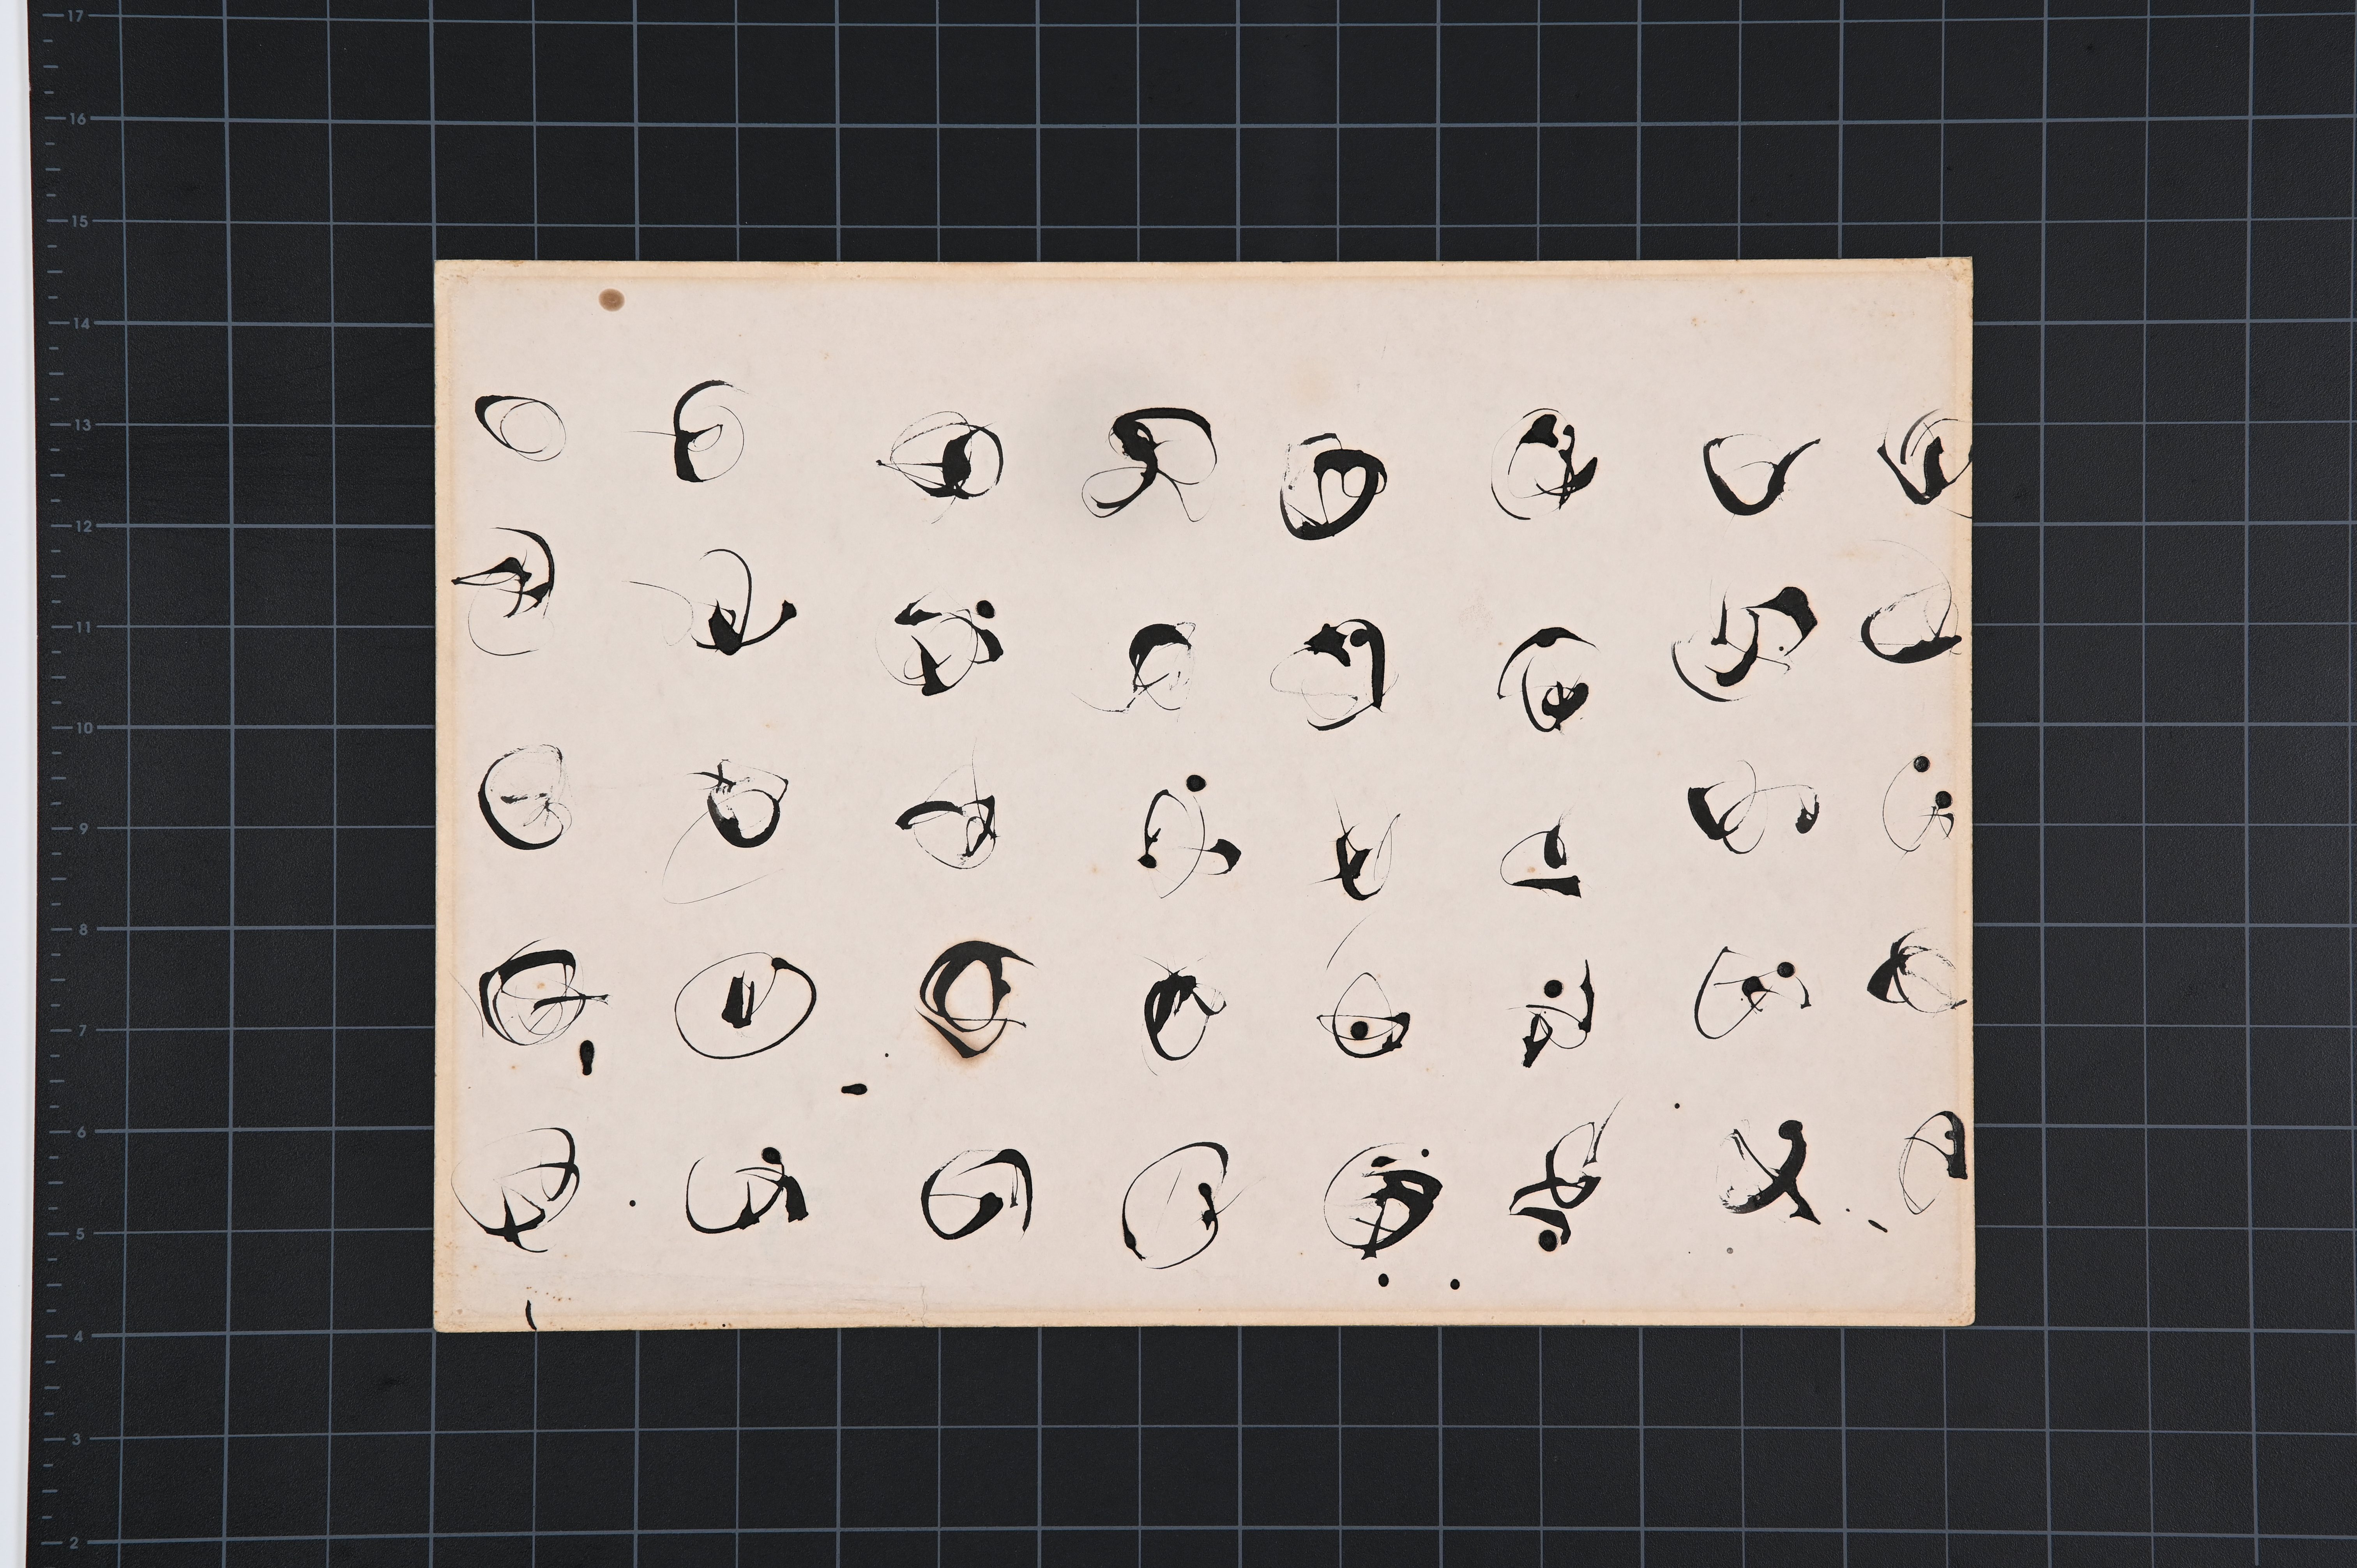 17
16
15
14
13
12
11
10
9
8
7
6
5
4
3
2